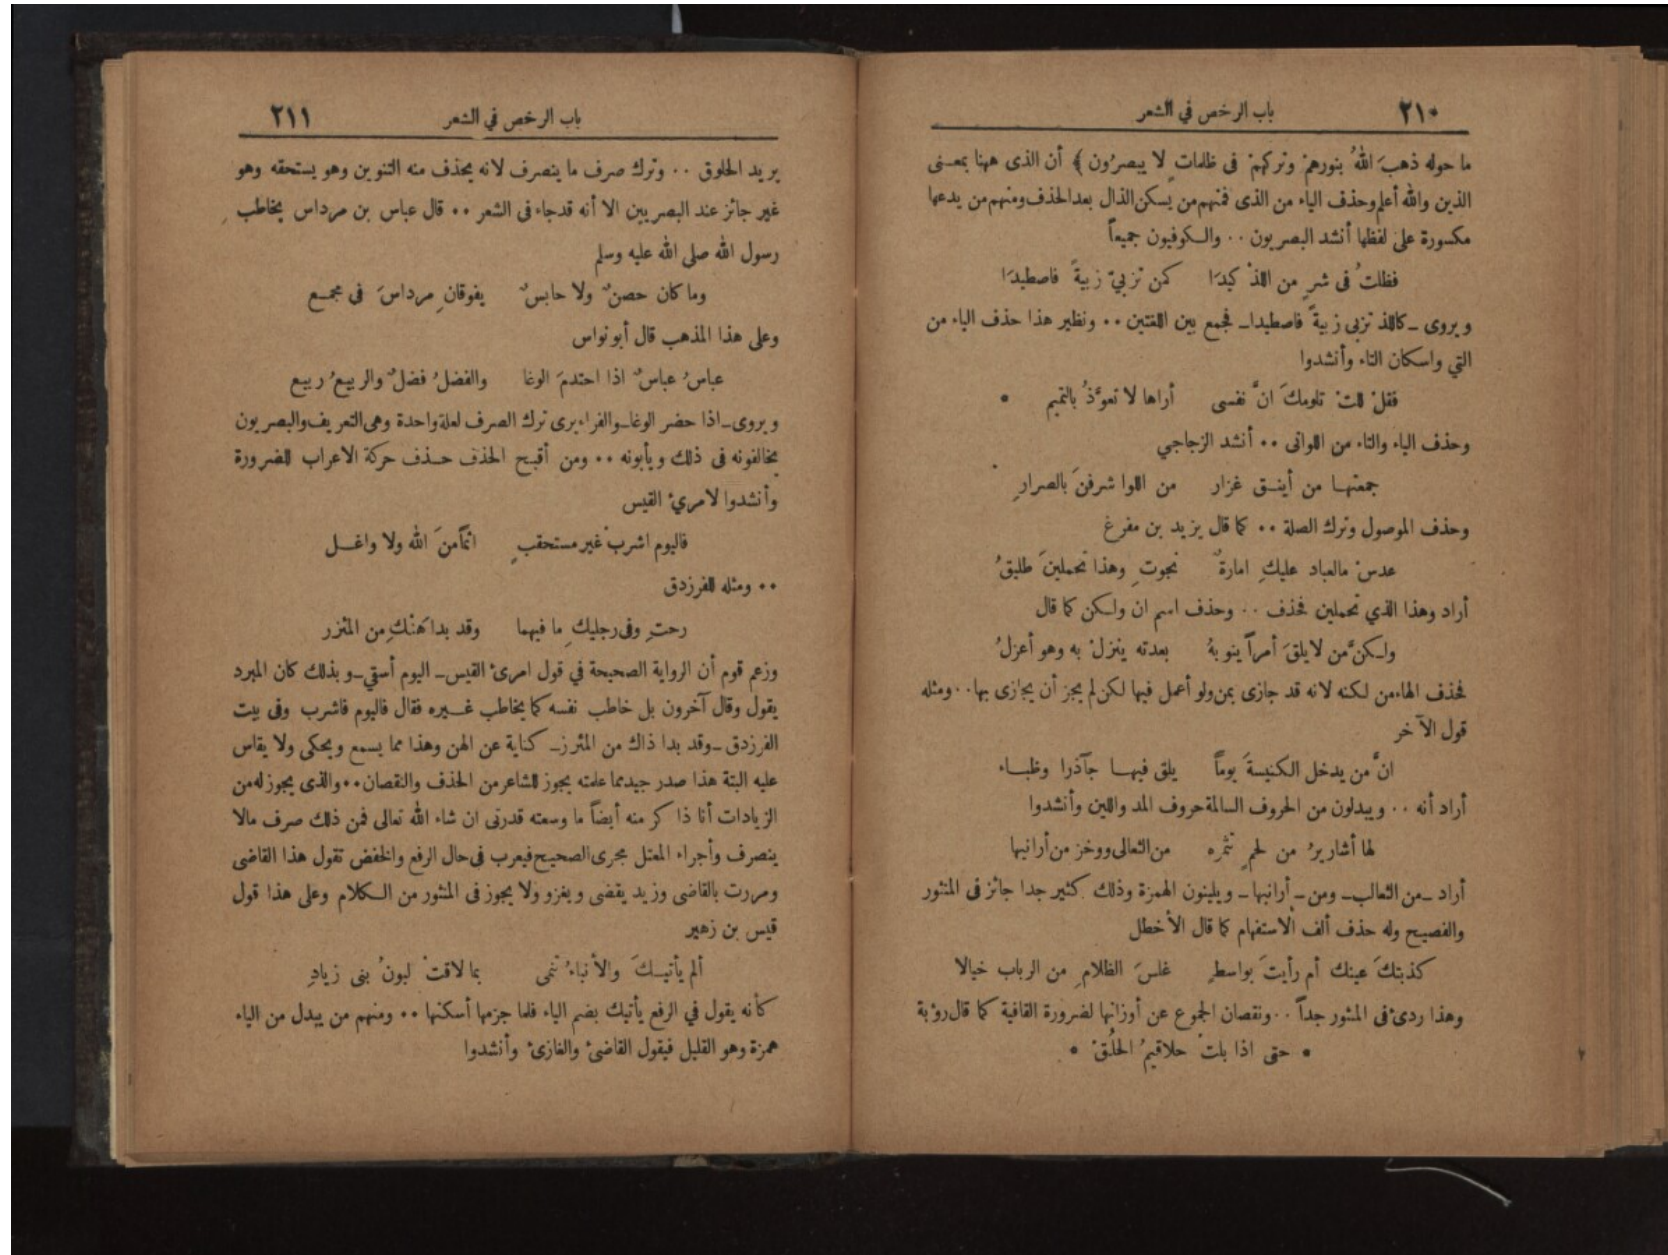 ٢١٠ باب الرخص في الشعر
ما حوله ذهبَ اللهُ بنورهمْ وتركهمْ فى ظلمات لا يبصرُون ﴾ أن الذى ههنا بمعنى
الذين والله أعلم وحذف الياء من الذى فمنهم من يسكن الذال بعد الحذف ومنهم من يدعها
مكسورة على لفظها أنشد البصريون ٠٠ والكوفيون جميعاً
فظلتُ فى شرٍ من اللذْ كيدَا كمن تزبيّ زبيةً فاصطيدَا
ويروى ـ كاللذ تزبى زبيةً فاصطيدا ـ فجمع بين اللغتين ٠٠ ونظير هذا حذف الياء من
التي واسكان التاء وأنشدوا
فقلْ للتْ تلومكَ انَّ نفسى أراها لا تعوَّذُ بالتميم •
وحذف الياء والتاء من اللواتى ٠٠ أنشد الزجاجي
جمعتهــا من أينــق غزار من اللوا شرفنَ بالصرارِ
وحذف الموصول وترك الصلة ٠٠ كما قال يزيد بن مفرغ
عدسْ مالعباد عليكِ امارةٌ نجوتِ وهذا تحملينَ طليقُ
أراد وهذا الذي تحملين فحذف ٠٠ وحذف اسم ان ولكن كما قال
ولكنَّ من لايلقَ أمراً ينوبهُ بعدته ينزلْ به وهو أعزلُ
فحذف الهاء من لكنه لانه قد جازى بمن ولو أعمل فيها لكن لم يجز أن يجازى بها ٠٠ ومثله
قول الآخر
انَّ من يدخل الكنيسةَ يوماً يلق فيهــا جآذرا وظبــاء
أراد أنه ٠٠ ويبدلون من الحروف السالمة حروف المد واللين وأنشدوا
لها أشاريرُ من لحمٍ تتمره من الثعالى ووخز من أرانيها
أراد ـ من الثعالب ـ ومن ـ أرانبها ـ ويلينون الهمزة وذلك كثير جدا جائز فى المنثور
والفصيح وله حذف ألف الاستفهام كما قال الأخطل
كذبتكَ عينك أم رأيتَ بواسطٍ غلسَ الظلامِ من الرباب خيالا
وهذا ردئ فى المنثور جداً ٠٠ ونقصان الجموع عن أوزانها لضرورة القافية كما قال رؤبة
• حتى اذا بلتْ حلاقيمُ الحلُقْ •
باب الرخص في الشعر ٢١١
يريد الحلوق ٠٠ وترك صرف ما ينصرف لانه يحذف منه التنوين وهو يستحقه وهو
غير جائز عند البصريين الا أنه قدجاء فى الشعر ٠٠ قال عباس بن مرداس يخاطب
رسول الله صلى الله عليه وسلم
وما كان حصنٌ ولا حابسٌ يفوقانِ مرداسَ فى مجمــع
وعلى هذا المذهب قال أبو نواس
عباسُ عباسٌ اذا احتدمَ الوغا والفضلُ فضلٌ والربيعُ ربيع
ويروى ـ اذا حضر الوغا ـ والفراء يرى ترك الصرف لعلة واحدة وهى التعريف والبصريون
يخالفونه فى ذلك ويأبونه ٠٠ ومن أقبح الحذف حــذف حركة الاعراب للضرورة
وأنشدوا لامرئ القيس
فاليوم اشربْ غير مستحقبٍ اثماً منَ الله ولا واغــل
٠٠ ومثله للفرزدق
رحتِ وفى رجليكِ ما فيهما وقد بدا هنْكِ من المئزر
وزعم قوم أن الرواية الصحيحة في قول امرئ القيس ـ اليوم أسقي ـ وبذلك كان المبرد
يقول وقال آخرون بل خاطب نفسه كما يخاطب غــيره فقال فاليوم فاشرب وفى بيت
الفرزدق ـ وقد بدا ذاك من المئرز ـ كناية عن الهن وهذا مما يسمع ويحكى ولا يقاس
عليه البتة هذا صدر جيد مما علمته يجوز للشاعر من الحذف والنقصان ٠٠ والذى يجوز له من
الزيادات أنا ذا كر منه أيضاً ما وسعته قدرتى ان شاء الله تعالى فمن ذلك صرف مالا
ينصرف وأجراء المعتل مجرى الصحيح فيعرب في حال الرفع والخفض تقول هذا القاضى
ومررت بالقاضى وزيد يقضى ويغزو ولا يجوز فى المنثور من الــكلام وعلى هذا قول
قيس بن زهير
ألم يأتيــكَ والأنباءُ تنمى بما لاقتْ لبونُ بنى زيادِ
كأنه يقول في الرفع يأتيك بضم الياء فلما جزمها أسكنها ٠٠ ومنهم من يبدل من الياء
همزة وهو القليل فيقول القاضئ والغازئ وأنشدوا